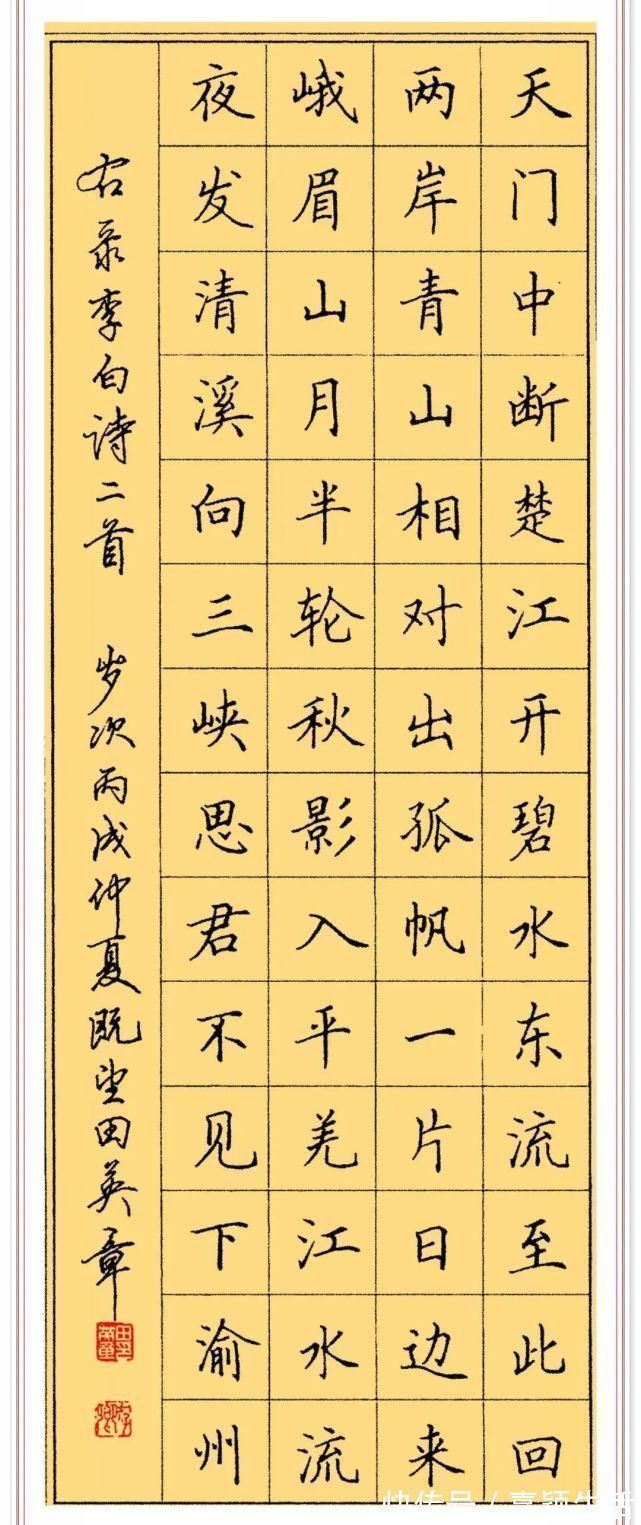 天门中断楚江开碧水东流至此回
两岸青山相对出孤帆一片日边来
峨眉山月半轮秋影入平羌江水流
夜发清溪向三峡思君不见下渝州
右录李白诗二首 岁次丙戌仲夏既望田英章
快传号 / 喜颖生活